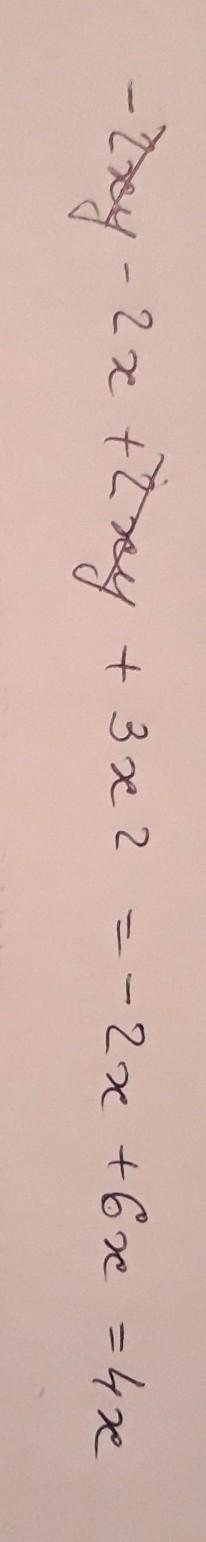 -2xy - 2x + 2xy + 3x2 = -2x + 6x = 4x